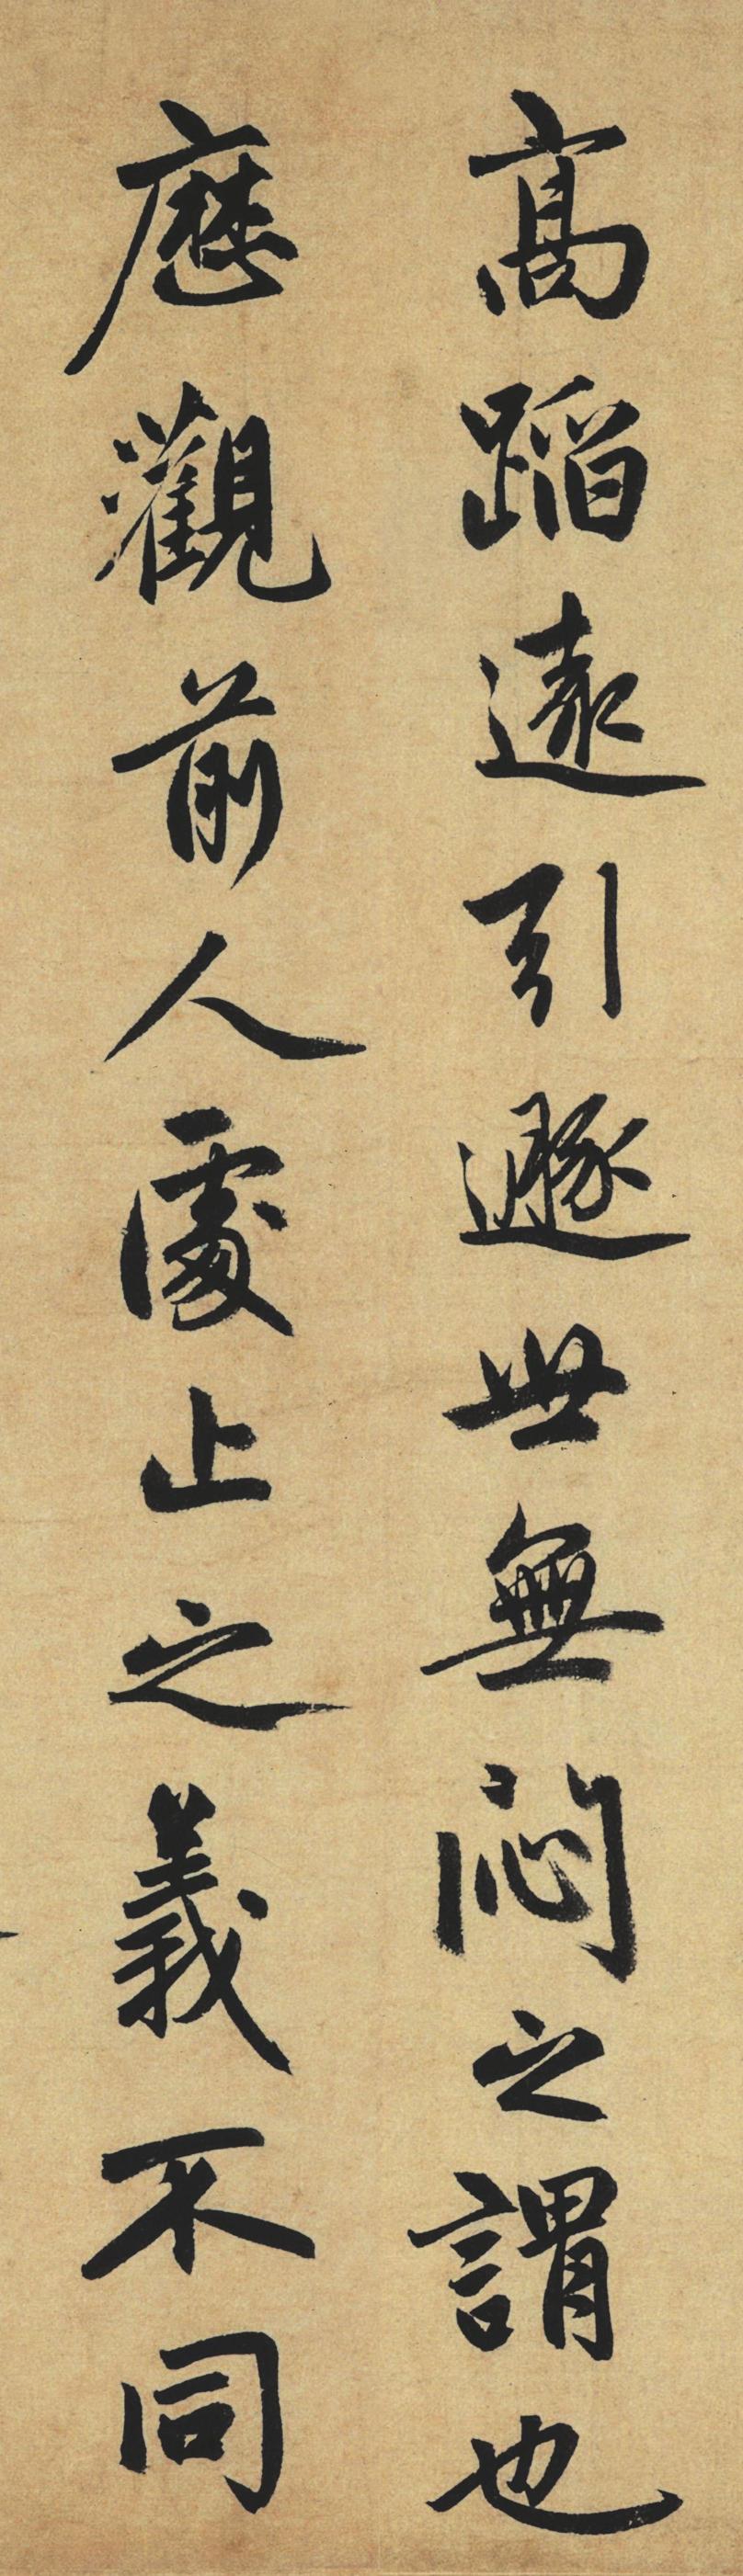 高蹈遠引遯世無悶之謂也
歷觀前人處止之義不同